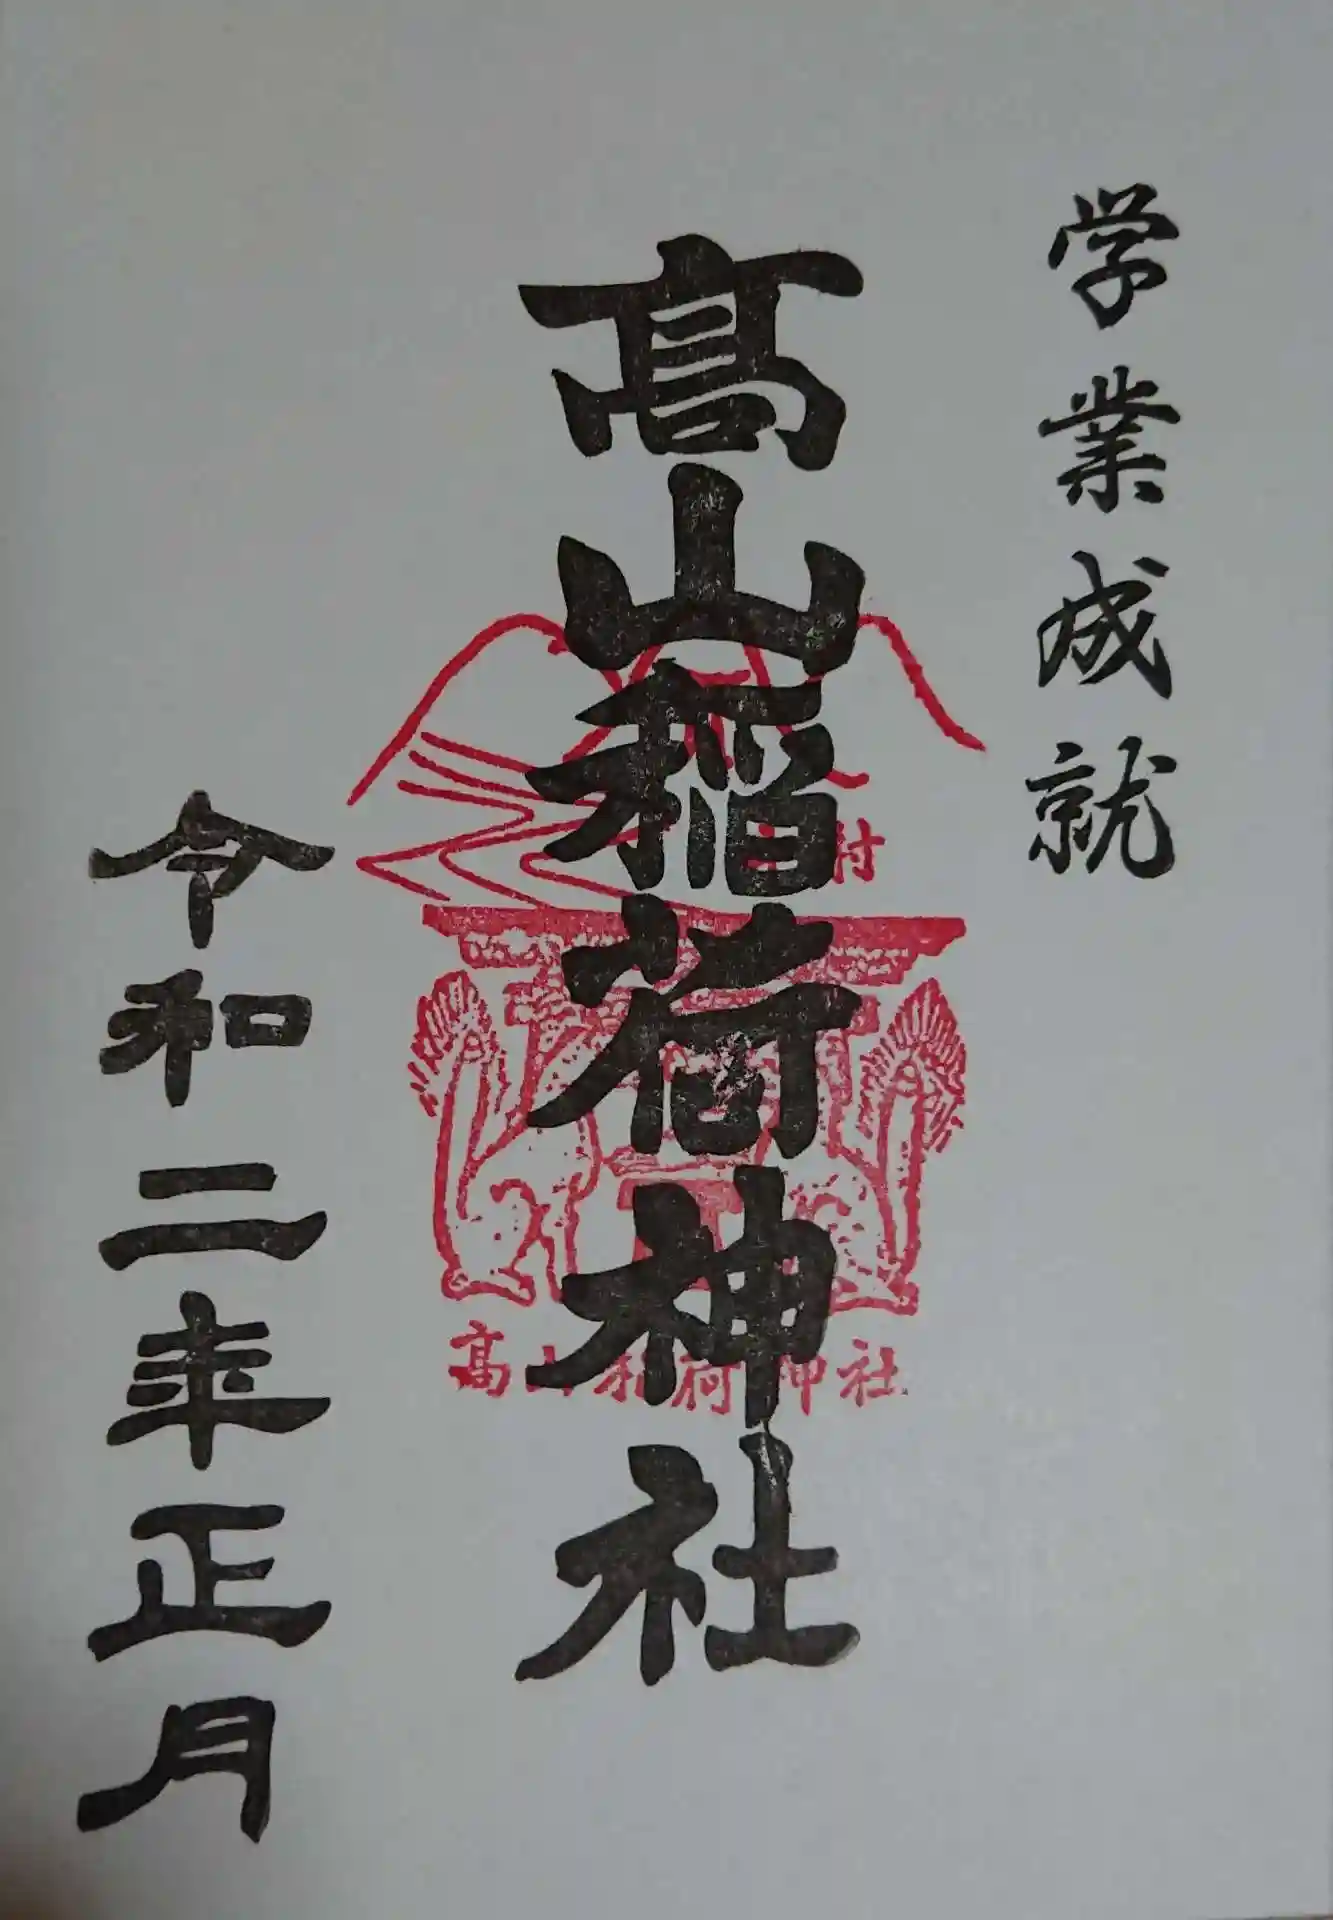 学業成就
髙山稲荷神社
令和二年正月
村
髙山稲荷神社